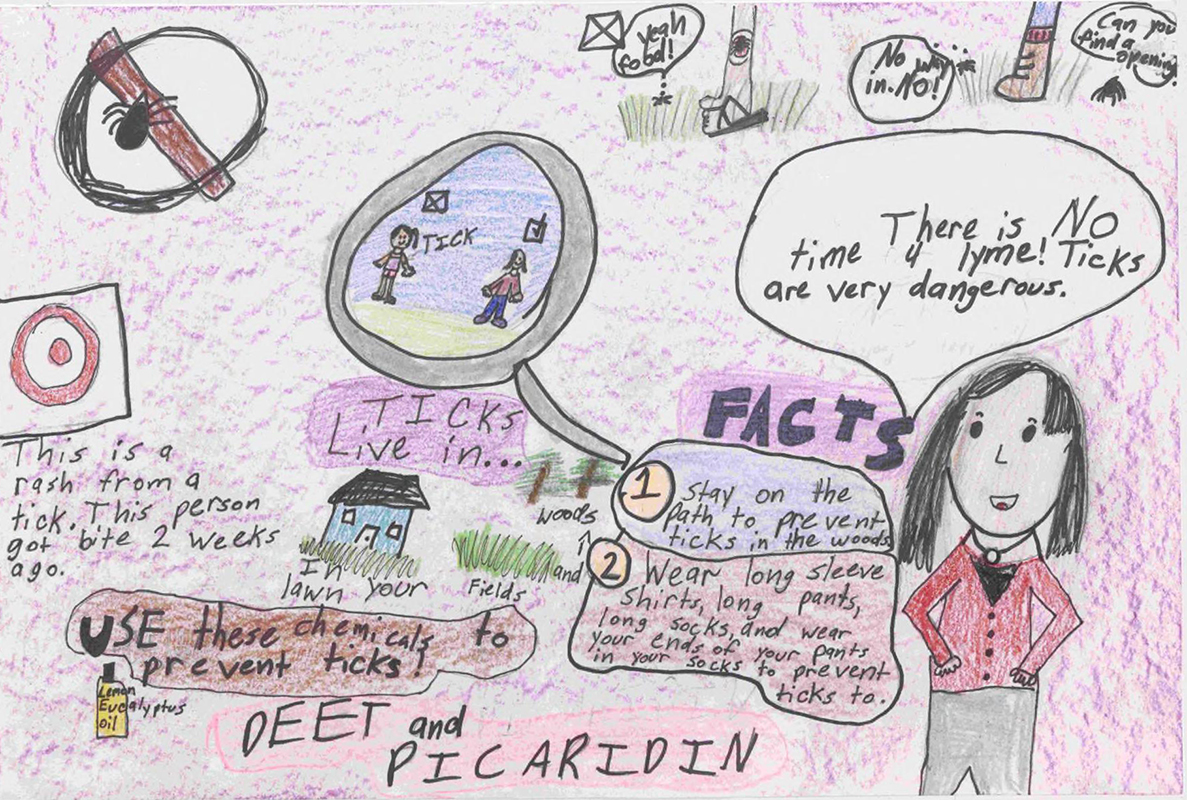 yeah
fobd!
No way
in. No!
Can you
find a
opening
There is NO
time 4 lyme! Ticks
are very dangerous.
TICK
FACTS
1 Stay on the
path to prevent
ticks in the woods
2 Wear long sleeve
shirts, long pants,
long socks, and wear
your ends of your pants
in your socks to prevent
ticks to.
TICKs
Live in...
woods
and
In
lawn your
Fields
This is a
rash from a
tick. This person
got bite 2 weeks
ago.
USE these chemicals to
prevent ticks!
Lemon
Eucalyptus
oil
DEET and
PICARIDIN